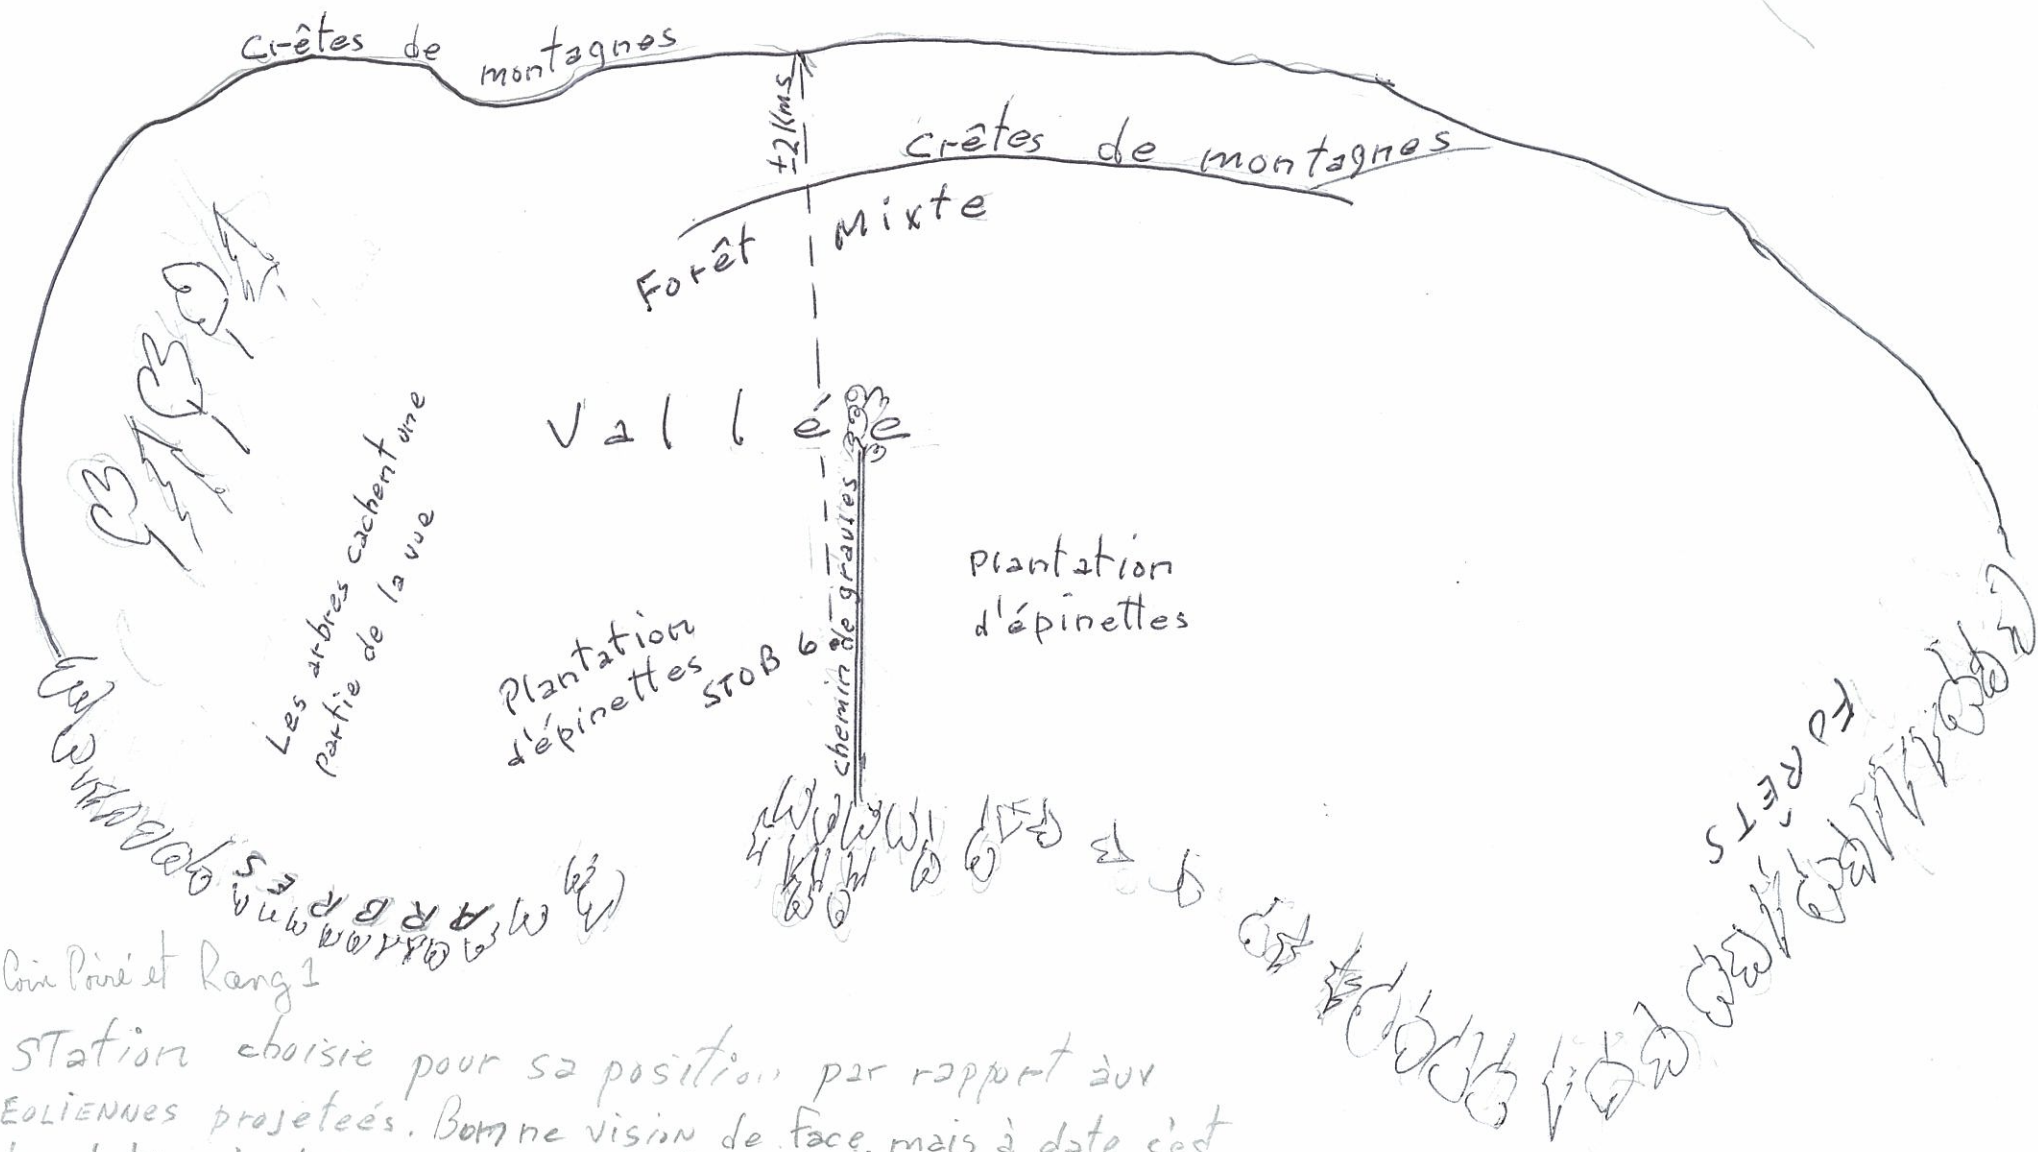 Crêtes de montagnes
±2Kms
Crêtes de montagnes
Forêt Mixte
Vallée
Les arbres cachent une
partie de la vue
Plantation
d'épinettes
STOB 6
chemin de gravles
Plantation
d'épinettes
FORÊTS
ARBRES
Coin Poiré et Rang 1
STation choisie pour sa position par rapport àux
EOLIENNES projeteés. Bonne vision de face, mais à date c'est